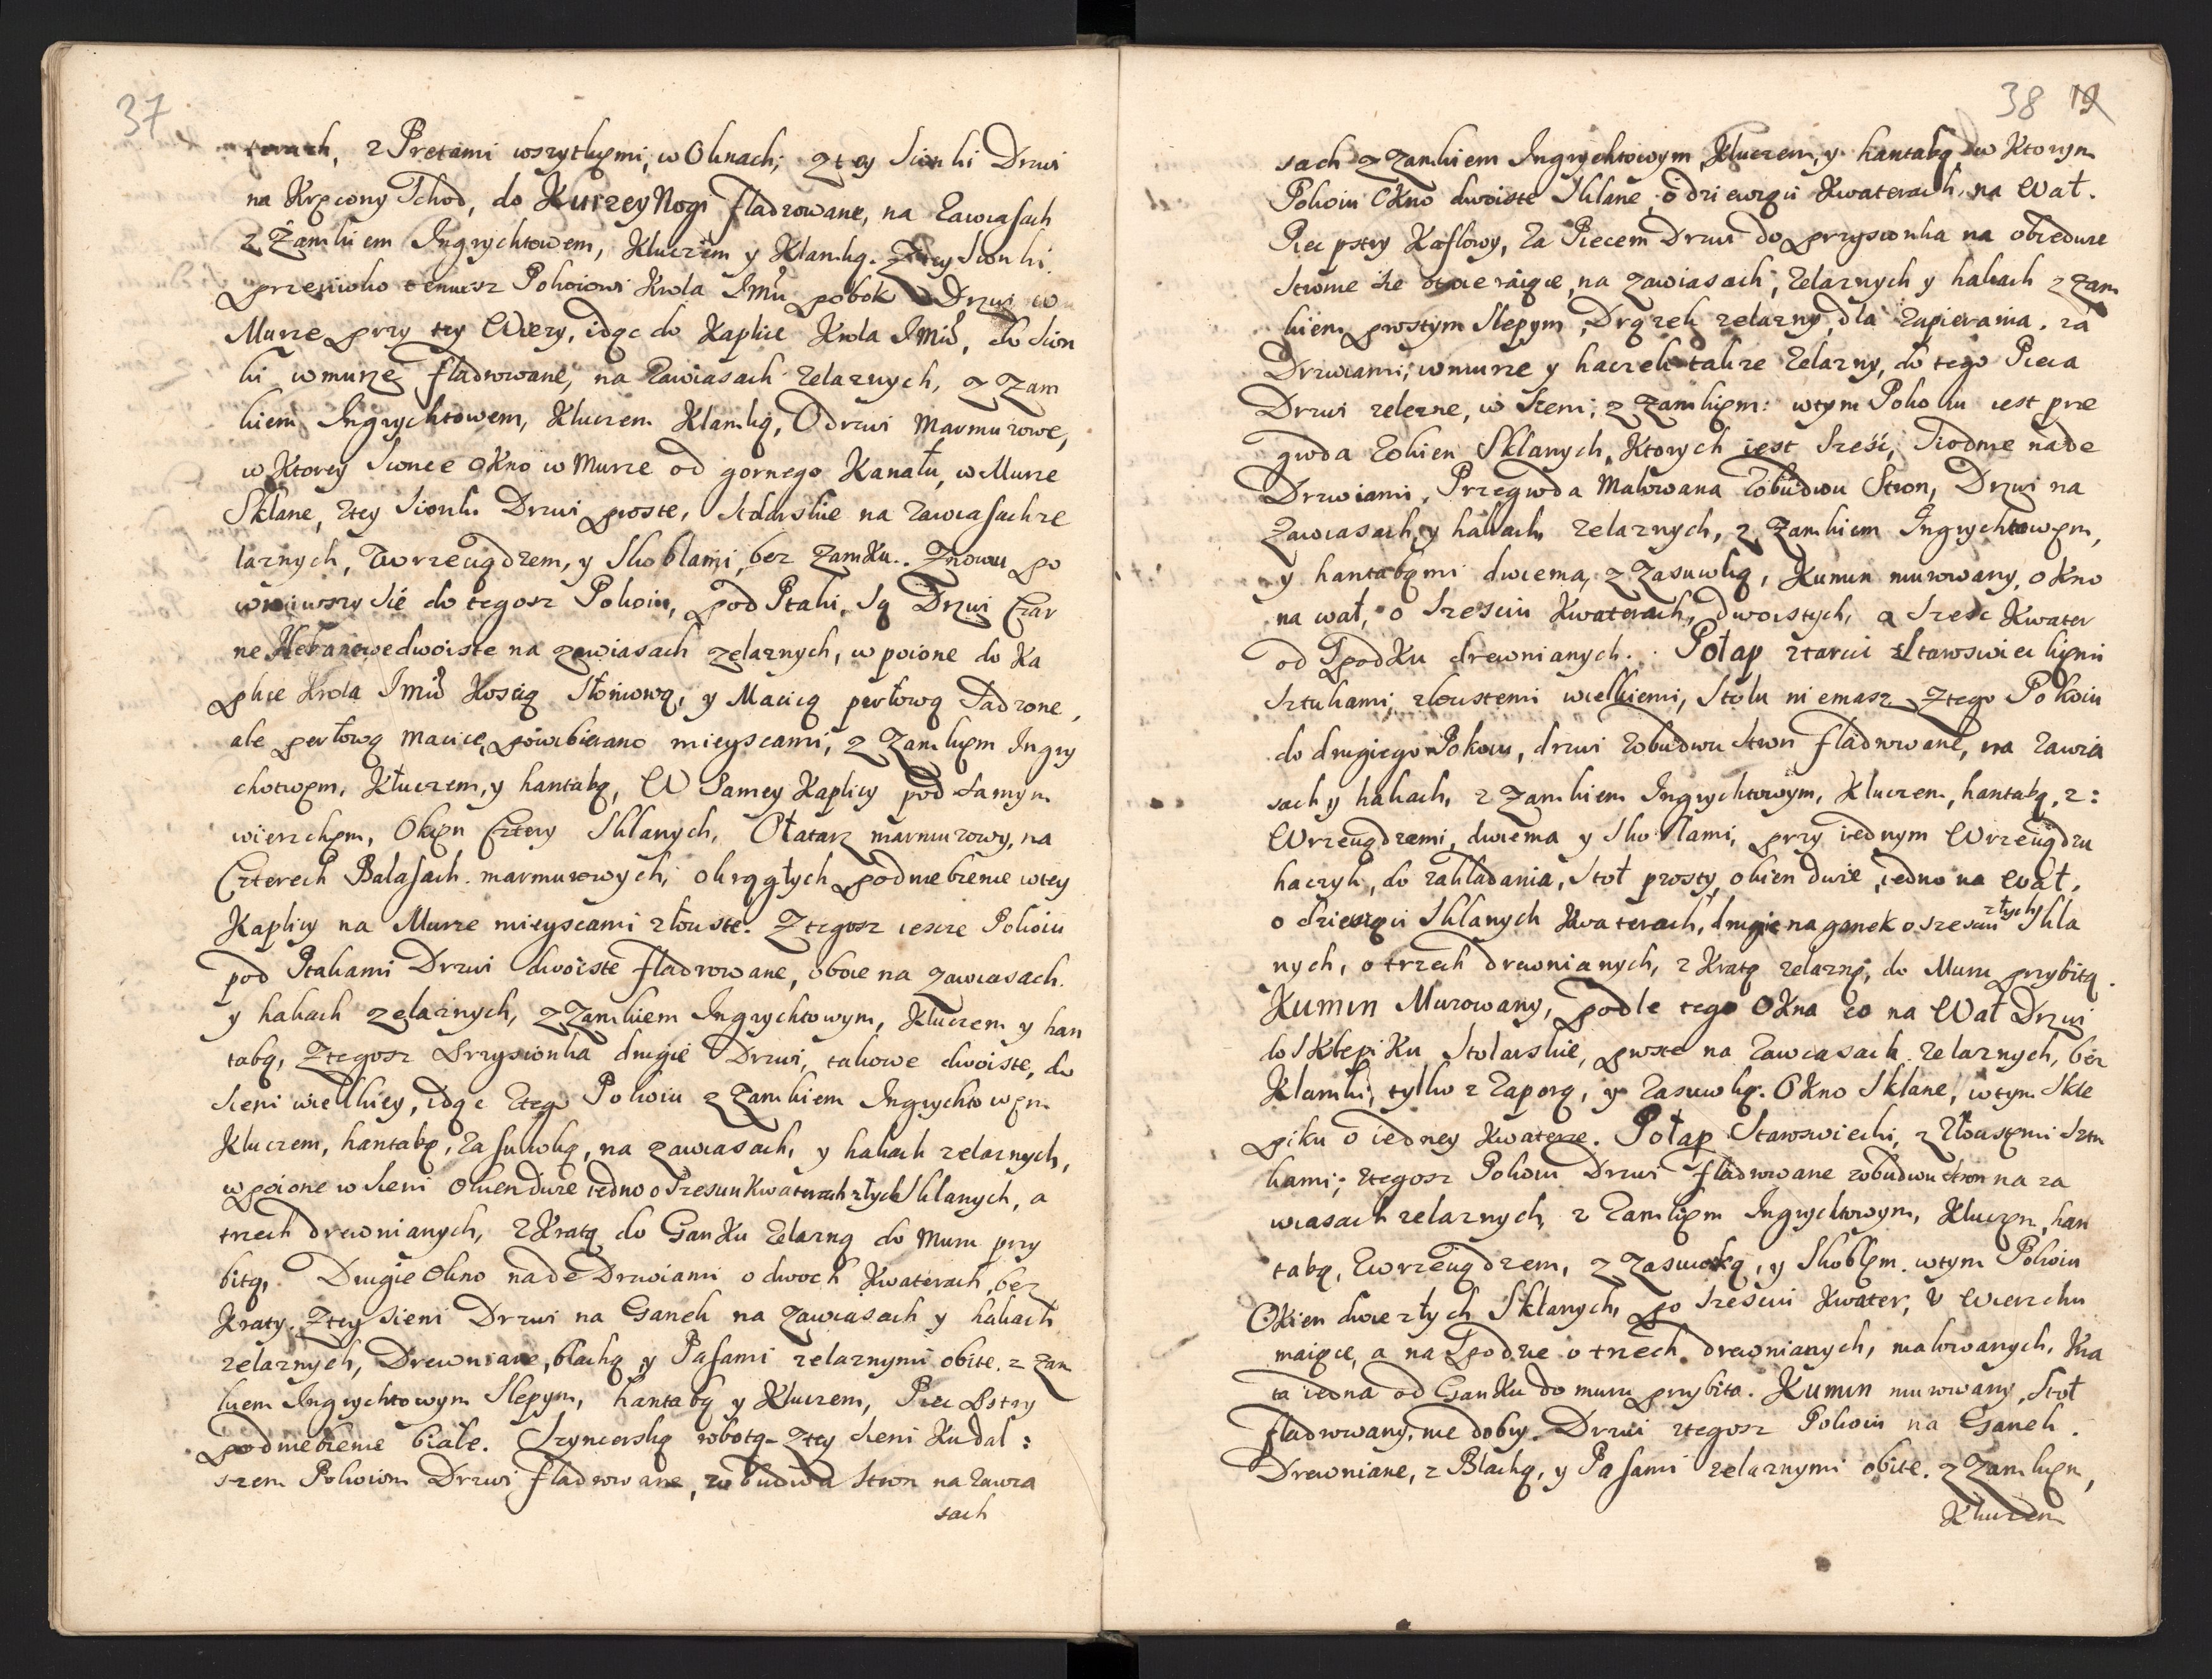 37
z Pretami wszytkiemi, w Oknach; z tey Sionki Drzwi
na Kręcony Schod, do Kurzey Nogi fladrowane, na Zawiasach
z Zamkiem Ingrychtowem, Kluczem y Klamką. Z tey Sionki
przeciwko temusz Pokoiowi Krola JMci pobok Drzwi w
Murze przy tey Wiezy, idąc do Kaplice Krola JMci, do Sion
ki w murze fladrowane, na Zawiasach Zelaznych, z Zam
kiem Ingrychtowem, Kluczem Klamką, Odrzwi Marmurowe,
w Ktorey Sionce okno w Murze od gornego Kanału, w Murze
Sklane, z tey Sionki Drzwi proste, Stolarskie na Zawiasach ze
laznych, Zwrzeciądzem, y Skoblami, bez Zamku. Znowu po
wrociwszy Sie do tegosz Pokoiu, pod Ptaki, Są Drzwi Czar
ne Hebanowe dwoiste na zawiasach zelaznych, w poione do Ka
plice Krola JMci Koscią Słoniową, y Macicą perłową Sadzone,
ale perłową macice, powibierano mieyscami, z Zamkiem Ingry
chtowem, Kluczem, y hantabą, W Samey Kaplicy pod samym
wierzchem, Okien Cztery Sklanych, Ołtarz marmurowy, na
Czterech Balasach marmurowych, okrągłych podniebienie w tey
Kaplicy na Murze mieyscami złociste. Z tegosz iescze Pokoiu
pod Ptakami Drzwi dwoiste fladrowane, oboie na zawiasach
y hakach zelaznych, z Zamkiem Ingrychtowym, Kluczem y han
tabą, Z tegosz Przysionka drugie Drzwi, takowe dwoiste, do
Sieni wielkiey, idąc z tego Pokoiu z Zamkiem Ingrychtowem
Kluczem, hantabą, Zasuwką, na zawiasach, y hakach zelaznych,
w poione w Sieni Okien dwie iedno o Szesciu Kwaterach złych Sklanych, a
trzech drewnianych, z Kratą do Ganku Zelazną do Muru przy
bitą, Drugie Okno nade Drzwiami o dwoch Kwaterach, bez
Kraty. Z tey Sieni Drzwi na Ganek na zawiasach y hakach
zelaznych, Drewniane, blachą y Pasami zelaznymi obite. z Zam
kiem Ingrychtowym Slepym, hantabą y Kluczem, Piec Pstry
podniebienie biale. Sznycerską robotą. Z tey Sieni Ku dal:
szem Pokoiom Drzwi fladrowane, zobudwu Stron na Zawia
sach
38 19
sach z Zamkiem Ingrychtowym Kluczem, y hantabą, w Ktorym
Pokoiu Okno dwoiste Sklane, o dziewiąci Kwaterach na Wał.
Piec pstry Kaflowy, Za Piecem Drzwi do przysionka na obiedwie
Stronie sie otwieraiące, na zawiasach, Zelaznych y hakach z Zam
kiem prostym Slepym, Drązek zelazny, dla Zapierania. za
Drzwiami, w murze y haczek takze Zelazny, do tego Pieca
Drzwi zelezne, w Sieni, z Zamkiem: w tym Pokoiu iest prze
groda Zokien Sklanych, Ktorych iest Sześć, Siodme nade
Drzwiami, Przegroda Malowana Zobudwu Stron, Drzwi na
Zawiasach, y hakach zelaznych, z Zamkiem Ingrychtowem,
y hantabami dwiema, z Zasuwką, Kumin murowany, okno
na wał, o Szesciu Kwaterach, dwoistych, a Szesc Kwater
od Spodku drewnianych. Połap z tarcic Staroswieckiemi
Sztukami, złocistemi wielkiemi, Stołu niemasz. Z tego Pokoiu
do drugiego Pokoiu, drzwi Zobudwu Stron fladrowane, na Zawia
sach y hakach, z Zamkiem Ingrychtowym, Kluczem, hantabą, z:
Wrzeciądzemi, dwiema y Skoblami, przy iednym Wrzeciądzu
haczyk, do zakładania, Stoł prosty, okien dwie, iedno na Wał,
o dziesiąci Sklanych Kwaterach, drugie na ganek o szesciu złych Skla
nych, o trzech drewnianych, z Kratą zelazną, do Muru przybitą.
Kumin Murowany, podle tego Okna co na Wał Drzwi
do Sklepiku Stolarskie, proste na Zawiasach zelaznych, bez
Klamki, tylko z Zaporą, y Zasuwką. Okno Sklane, w tym Skle
piku o iedney Kwaterze. Połap Staroswiecki, z Złocistymi Sztu
kami; z tegosz Pokoiu Drzwi fladrowane zobudwu stron na za
wiasach zelaznych, z Zamkiem Ingrychtowym, Kluczem, han
tabą, Zwrzeciądzem, z Zasuwką, y Skoblem. w tym Pokoiu
Okien dwie złych Sklanych, po szesciu Kwater, v wierzchu
maiące, a na Spodzie o trzech drewnianych, malowanych, Kra
ta iedna od Ganku do muru przybita. Kumin murowany, Stoł
fladrowany, nie dobry. Drzwi z tegosz Pokoiu na Ganek.
Drewniane, z Blachą, y Pasami zelaznymi obite. z Zamkiem,
Kluczem